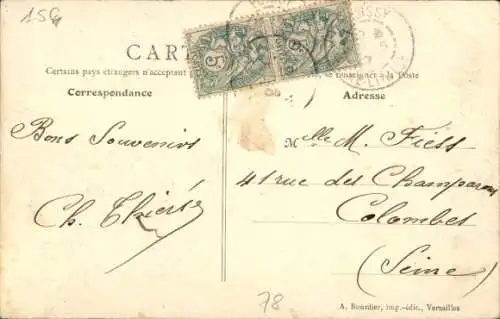 156
CART
Certains pays étrangers n'acceptent
se renseigner à la Poste
Correspondance
Adresse
Bons Souvenirs
Ch. Thierse
Melle M. Fiess
41 rue des Champarons
Colombes
(Seine)
78
A. Bourdier, imp.-édit., Versailles
5